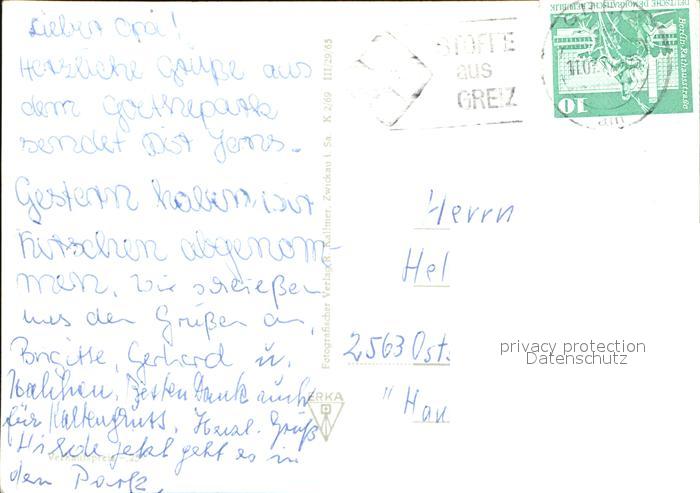 Lieber Opa!
Herzliche Grüße aus
dem Goethepark
sendet Dir Jens.
Gestern haben wir
Kirschen abgenom-
men. Wir schließen
uns den Grüßen an,
Brigitte, Gerhard u.
Besten Dank auch
für Kartengruß. Herzl. Gruß
jetzt geht es in
den Park.
Fotografischer Verlag R. Kallmer, Zwickau i. Sa. K 2/69 III/29/65
STOFFE
aus
GREIZ
DEUTSCHE DEMOKRATISCHE REPUBLIK
Berlin-Rathausstraße
10
Herrn
Hel
2563 Ost
" Hau
privacy protection
Datenschutz
ERKA